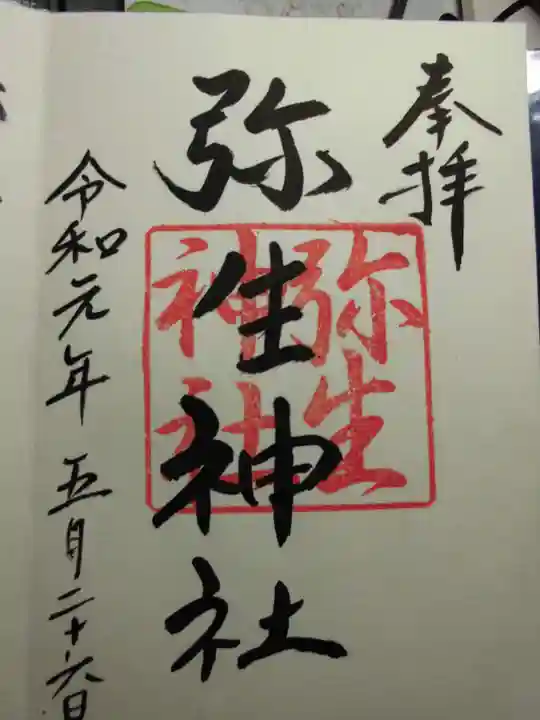 奉拝
弥生神社
弥生
神社
令和元年 五月二十六日